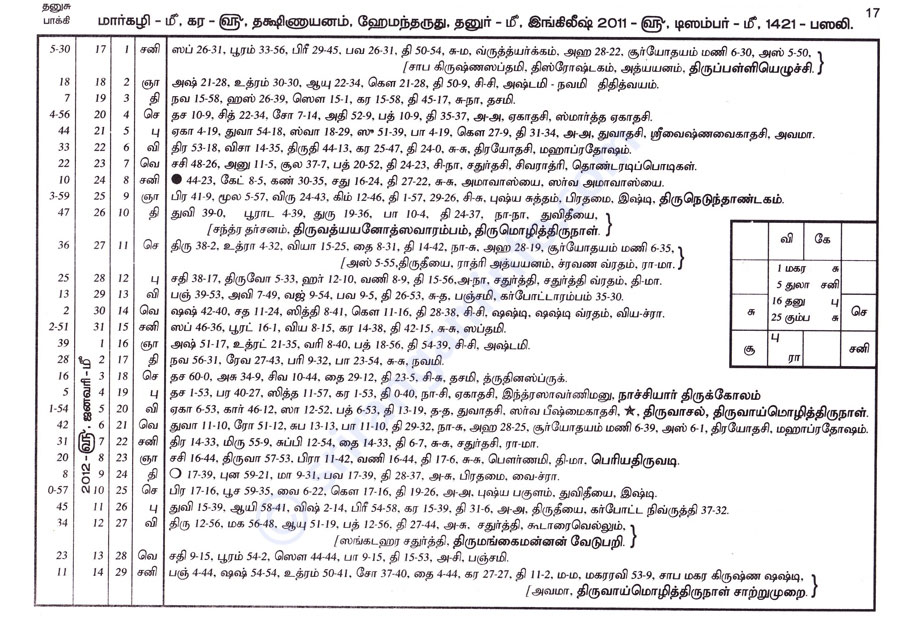 தனுசு பாக்கி
மார்கழி - மீ, கர - ௵, தக்ஷிணாயனம், ஹேமந்தருது, தனுர் - மீ, இங்கிலீஷ் 2011 - ௵, டிஸம்பர் - மீ, 1421 - பஸலி.
17
5-30 17 1 சனி ஸப் 26-31, பூரம் 33-56, பிரீ 29-45, பவ 26-31, தி 50-54, சு-ம, வ்ருத்யர்க்கம், அஹ 28-22, சூர்யோதயம் மணி 6-30, அஸ் 5-50,
[சாப கிருஷ்ணஸப்தமி, திஸ்ரோஷ்டகம், அத்யயனம், திருப்பள்ளியெழுச்சி.
18 18 2 ஞா அஷ் 21-28, உத்ரம் 30-30, ஆயு 22-34, கௌ 21-28, தி 50-9, சி-சி, அஷ்டமி - நவமி திதித்வயம்.
7 19 3 தி நவ 15-58, ஹஸ் 26-39, ஸௌ 15-1, கர 15-58, தி 45-17, சு-நா, தசமி.
4-56 20 4 செ தச 10-9, சித் 22-34, சோ 7-14, அதி 52-9, பத் 10-9, தி 35-37, அ-அ, ஏகாதசி, ஸ்மார்த்த ஏகாதசி.
44 21 5 பு ஏகா 4-19, துவா 54-18, ஸ்வா 18-29, ஸு 51-39, பா 4-19, கௌ 27-9, தி 31-34, அ-அ, துவாதசி, ஸ்ரீவைஷ்ணவைகாதசி, அவமா.
33 22 6 வி திர 53-18, விசா 14-35, திருதி 44-13, கர 25-47, தி 24-0, சு-சு, திரயோதசி, மஹாப்ரதோஷம்.
22 23 7 வெ சசி 48-26, அனு 11-5, சூல 37-7, பத் 20-52, தி 24-23, சி-நா, சதுர்தசி, சிவராத்ரி, தொண்டரடிப்பொடிகள்.
10 24 8 சனி ● 44-23, கேட் 8-5, கண் 30-35, சது 16-24, தி 27-22, சு-சு, அமாவாஸ்யை, ஸர்வ அமாவாஸ்யை.
3-59 25 9 ஞா பிர 41-9, மூல 5-57, விரு 24-43, கிம் 12-46, தி 1-57, 29-26, சி-சு, புஷ்ய சுத்தம், பிரதமை, இஷ்டி, திருநெடுந்தாண்டகம்.
47 26 10 தி துவி 39-0, பூராட 4-39, துரு 19-36, பா 10-4, தி 24-37, நா-நா, துவிதீயை,
[சந்த்ர தர்சனம், திருவத்யயனோத்ஸவாரம்பம், திருமொழித்திருநாள்.
36 27 11 செ திரு 38-2, உத்ரா 4-32, வியா 15-25, தை 8-31, தி 14-42, நா-சு, அஹ 28-19, சூர்யோதயம் மணி 6-35,
[அஸ் 5-55,திருதீயை, ராத்ரி அத்யயனம், ச்ரவண வ்ரதம், ரா-மா.
25 28 12 பு சதி 38-17, திருவோ 5-33, ஹர் 12-10, வணி 8-9, தி 15-56,அ-நா, சதுர்த்தி, சதுர்த்தி வ்ரதம், தி-மா.
13 29 13 வி பஞ் 39-53, அவி 7-49, வஜ் 9-54, பவ 9-5, தி 26-53, சு-த, பஞ்சமி, கர்போட்டாரம்பம் 35-30.
2 30 14 வெ ஷஷ் 42-40, சத 11-24, ஸித்தி 8-41, கௌ 11-16, தி 28-38, சி-சி, ஷஷ்டி, ஷஷ்டி வ்ரதம், விய-ச்ரா.
2-51 31 15 சனி ஸப் 46-36, பூரட் 16-1, விய 8-15, கர 14-38, தி 42-15, சு-சு, ஸப்தமி.
2012 - ௵, ஜனவரி - மீ
39 1 16 ஞா அஷ் 51-17, உத்ரட் 21-35, வரி 8-40, பத் 18-56, தி 54-39, சி-சி, அஷ்டமி.
28 2 17 தி நவ 56-31, ரேவ 27-43, பரி 9-32, பா 23-54, சு-சு, நவமி.
16 3 18 செ தச 60-0, அசு 34-9, சிவ 10-44, தை 29-12, தி 23-5, சி-சு, தசமி, த்ருதினஸ்ப்ருக்.
5 4 19 பு தச 1-53, பர 40-27, ஸித்த 11-57, கர 1-53, தி 0-40, நா-சி, ஏகாதசி, இந்த்ரஸாவர்ணிமனு, நாச்சியார் திருக்கோலம்
1-54 5 20 வி ஏகா 6-53, கார் 46-12, ஸா 12-52, பத் 6-53, தி 13-19, த-த, துவாதசி, ஸர்வ பீஷ்மைகாதசி, ★, திருவாசல், திருவாய்மொழித்திருநாள்.
42 6 21 வெ துவா 11-10, ரோ 51-12, சுப 13-13, பா 11-10, தி 29-32, நா-சு, அஹ 28-25, சூர்யோதயம் மணி 6-39, அஸ் 6-1, திரயோதசி, மஹாப்ரதோஷம்.
31 7 22 சனி திர 14-33, மிரு 55-9, சுப்பி 12-54, தை 14-33, தி 6-7, சு-சு, சதுர்தசி, ரா-மா.
20 8 23 ஞா சசி 16-44, திருவா 57-53, பிரா 11-42, வணி 16-44, தி 17-6, சு-சு, பௌர்ணமி, தி-மா, பெரியதிருவடி.
8 9 24 தி ○ 17-39, புன 59-21, மா 9-31, பவ 17-39, தி 28-37, அ-சு, பிரதமை, வை-ச்ரா.
0-57 10 25 செ பிர 17-16, பூச 59-35, வை 6-22, கௌ 17-16, தி 19-26, அ-அ, புஷ்ய பகுளம், துவிதீயை, இஷ்டி.
45 11 26 பு துவி 15-39, ஆயி 58-41, விஷ் 2-14, பிரீ 54-58, கர 15-39, தி 31-6, அ-அ, திருதீயை, கர்போட்ட நிவ்ருத்தி 37-32.
34 12 27 வி திரு 12-56, மக 56-48, ஆயு 51-19, பத் 12-56, தி 27-44, அ-சு, சதுர்த்தி, கூடாரைவெல்லும்,
[ஸங்கடஹர சதுர்த்தி, திருமங்கைமன்னன் வேடுபறி.
23 13 28 வெ சதி 9-15, பூரம் 54-2, ஸௌ 44-44, பா 9-15, தி 15-53, அ-சி, பஞ்சமி.
11 14 29 சனி பஞ் 4-44, ஷஷ் 54-54, உத்ரம் 50-41, சோ 37-40, தை 4-44, கர 27-27, தி 11-2, ம-ம, மகரரவி 53-9, சாப மகர கிருஷ்ண ஷஷ்டி,
[அவமா, திருவாய்மொழித்திருநாள் சாற்றுமுறை.
வி கே
1 மகர சு
5 துலா சனி
16 தனு பு
25 கும்ப சு
சு செ
சூ பு ரா சனி